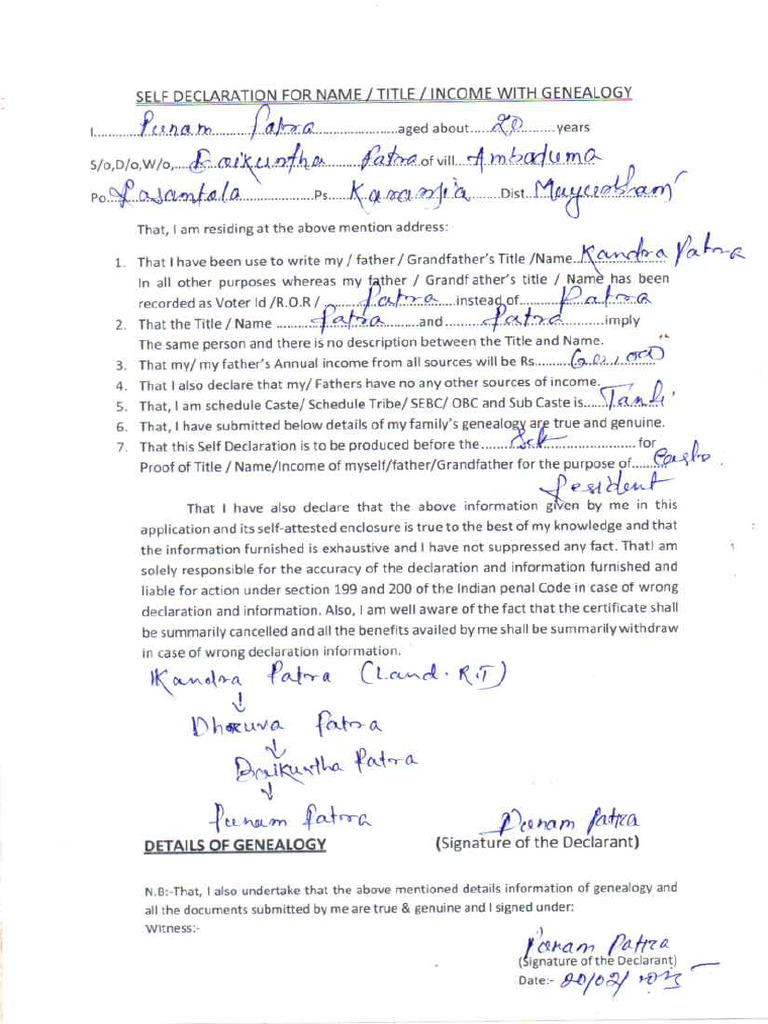 SELF DECLARATION FOR NAME / TITLE / INCOME WITH GENEALOGY
I............Punam Patra............aged about....20....years
S/o,D/o,W/o,....Baikuntha Patra of vill. Ambaduma
Po....Lasantola....Ps....Karanjia....Dist....
That, I am residing at the above mention address:
1. That I have been use to write my / father / Grandfather's Title /Name..Kandra Patra
In all other purposes whereas my father / Grandf ather's title / Name has been
recorded as Voter Id /R.O.R / ....Patra....instead of....Patra
2. That the Title / Name ....Patra....and....Patra....imply
The same person and there is no description between the Title and Name.
3. That my/ my father's Annual income from all sources will be Rs....60,000
4. That I also declare that my/ Fathers have no any other sources of income.
5. That, I am schedule Caste/ Schedule Tribe/ SEBC/ OBC and Sub Caste is......Tanti
6. That, I have submitted below details of my family's genealogy are true and genuine.
7. That this Self Declaration is to be produced before the........for
Proof of Title / Name/Income of myself/father/Grandfather for the purpose of........
Resident
That I have also declare that the above information given by me in this
application and its self-attested enclosure is true to the best of my knowledge and that
the information furnished is exhaustive and I have not suppressed any fact. ThatI am
solely responsible for the accuracy of the declaration and information furnished and
liable for action under section 199 and 200 of the Indian penal Code in case of wrong
declaration and information. Also, I am well aware of the fact that the certificate shall
be summarily cancelled and all the benefits availed by me shall be summarily withdraw
in case of wrong declaration information.
Kandra Patra (Land. R.T)
↓
Dhruva Patra
↓
Baikuntha Patra
↓
Punam Patra
Punam Patra
DETAILS OF GENEALOGY
(Signature of the Declarant)
N.B:-That, I also undertake that the above mentioned details information of genealogy and
all the documents submitted by me are true & genuine and I signed under:
Witness:-
Punam Patra
(Signature of the Declarant)
Date:- 20/02/2025